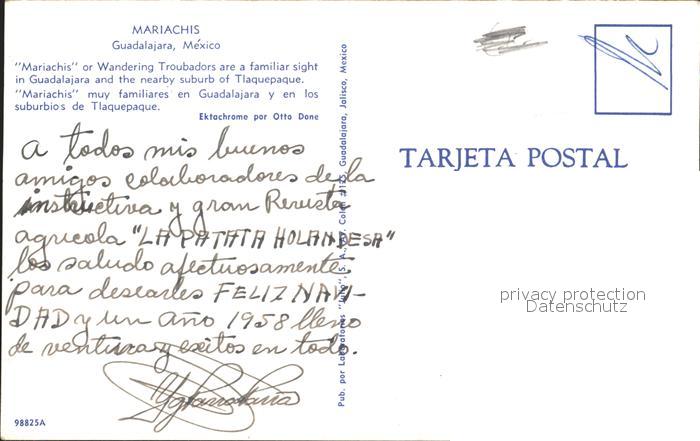 MARIACHIS
Guadalajara, México
"Mariachis" or Wandering Troubadors are a familiar sight
in Guadalajara and the nearby suburb of Tlaquepaque.
"Mariachis" muy familiares en Guadalajara y en los
suburbios de Tlaquepaque.
Ektachrome por Otto Done
A todos mis buenos
amigos colaboradores de la
instructiva y gran Revista
agricola "LA PATATA HOLANDESA"
los saludo afectuosamente
para desearles FELIZ NAVI-
DAD y un año 1958 lleno
de ventura y exitos en todo.
98825A
Pub. por Laboratorios "Julio", S. A., Av. Colón #125, Guadalajara, Jalisco, Mexico
TARJETA POSTAL
privacy protection
Datenschutz